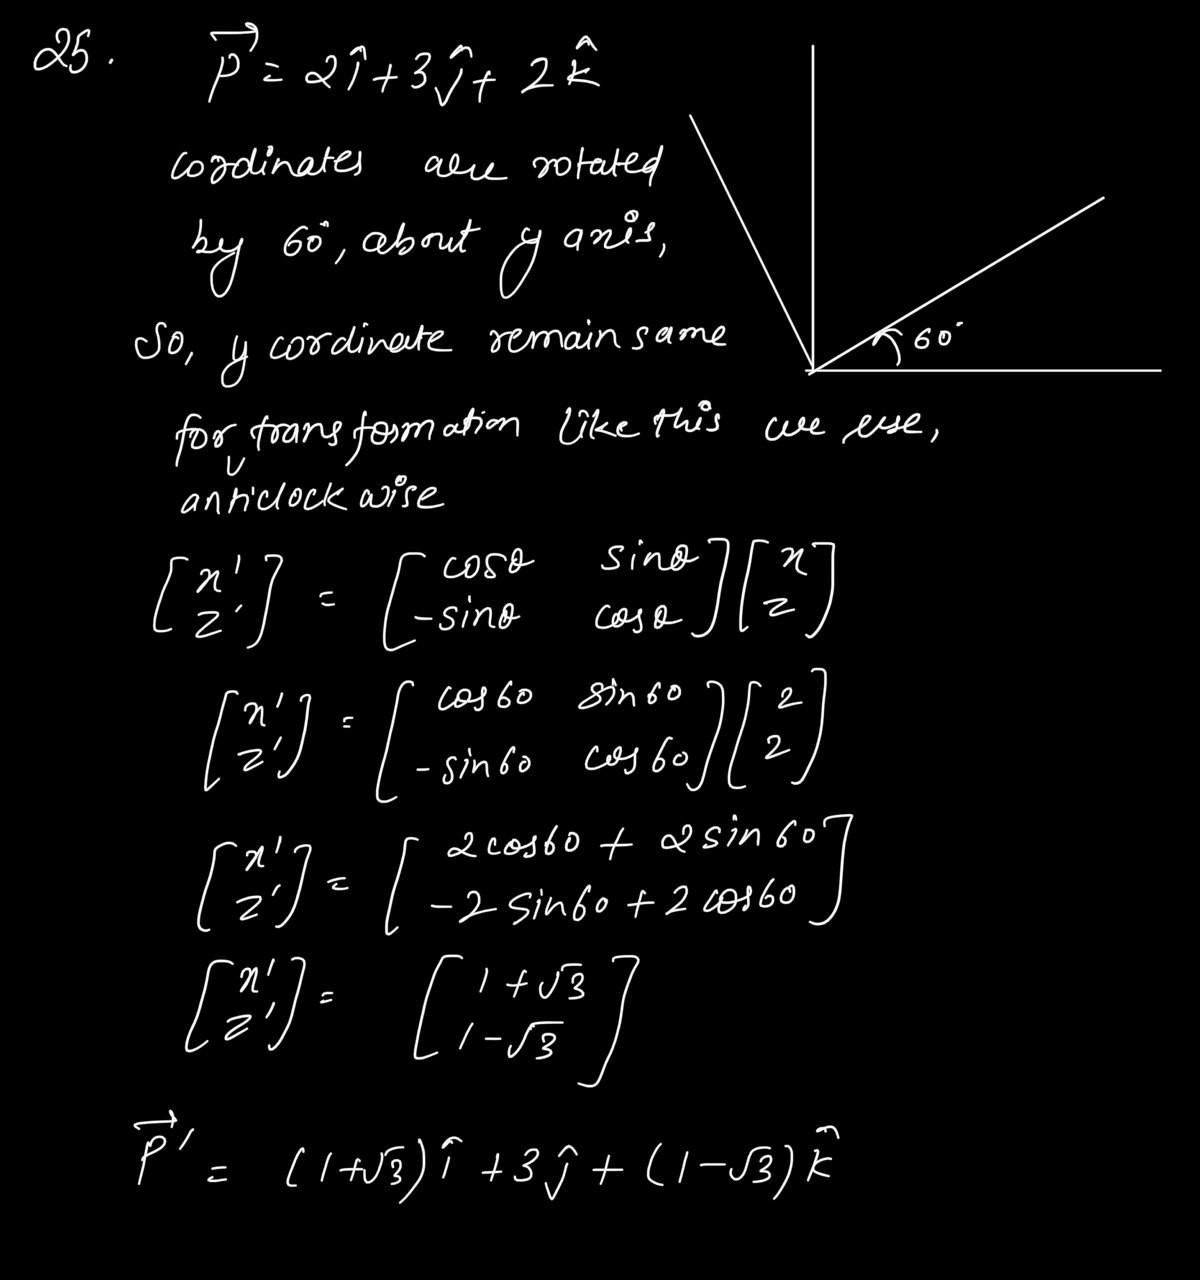 25. P⃗ = 2î + 3ĵ + 2k̂
cordinates are rotated
by 60°, about y axis,
60°
So, y cordinate remain same
for transformation like this we use,
anticlockwise
[x' z'] = [cosθ sinθ -sinθ cosθ] [x z]
[x' z'] = [cos60 sin60 -sin60 cos60] [2 2]
[x' z'] = [2cos60 + 2sin60 -2sin60 + 2cos60]
[x' z'] = [1+√3 1-√3]
P⃗' = (1+√3)î + 3ĵ + (1-√3)k̂